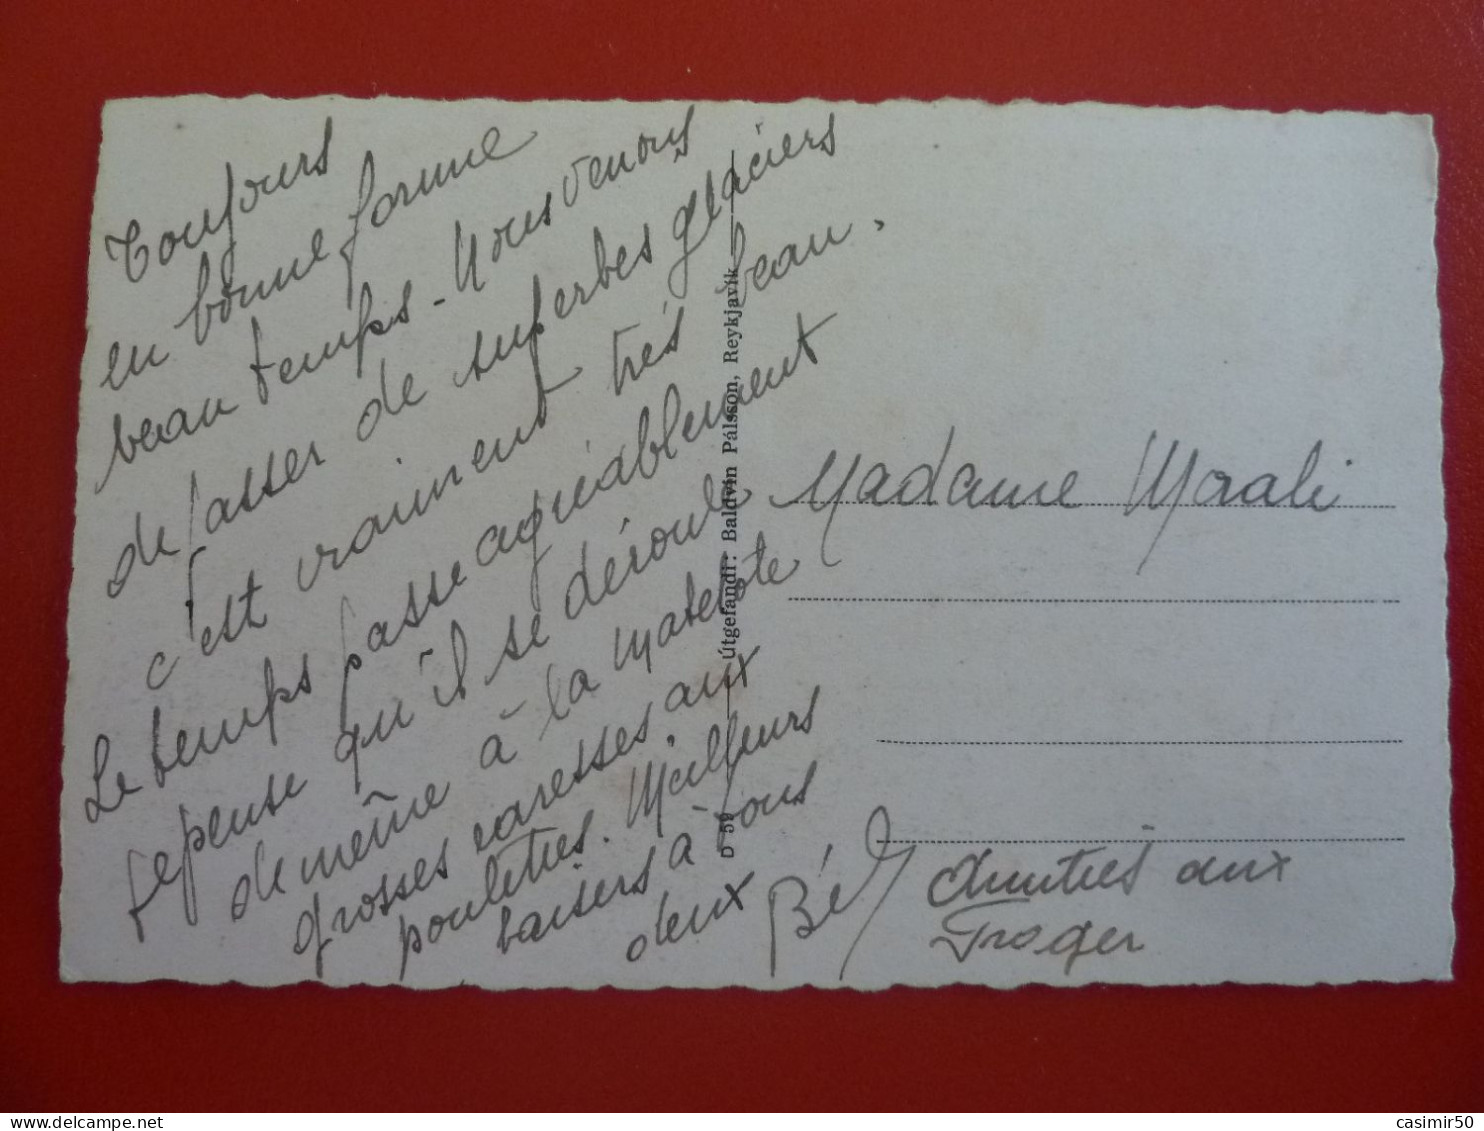 Toujours
en bonne forme
beau temps - Nous venons
de passer de superbes glaciers
c'est vraiment très beau.
Le temps passe agréablement
je pense qu'il se déroule
de même à la matelote
grosses caresses aux
poulettes. Meilleurs
baisers à tous
deux
Bé
Útgefandi: Baldvin Pálsson, Reykjavík
D 59
Madame Morali
Amitiés aux
Troger
casimir50
delcampe.net